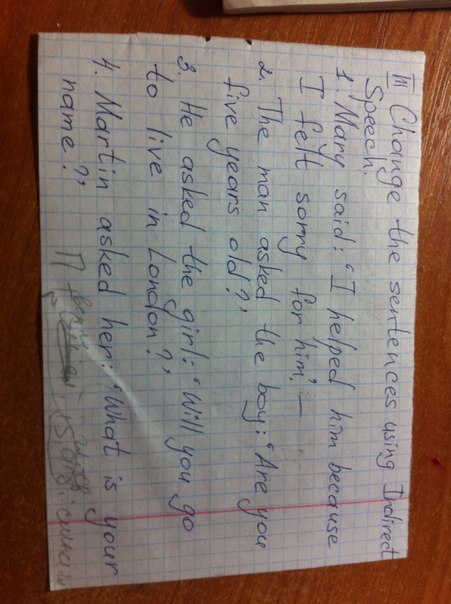 III Change the sentences using Indirect
Speech.
1. Mary said: 'I helped him because
I felt sorry for him'. –
2. The man asked the boy: 'Are you
five years old?'
3. He asked the girl: 'Will you go
to live in London?'
4. Martin asked her: 'What is your
name?'